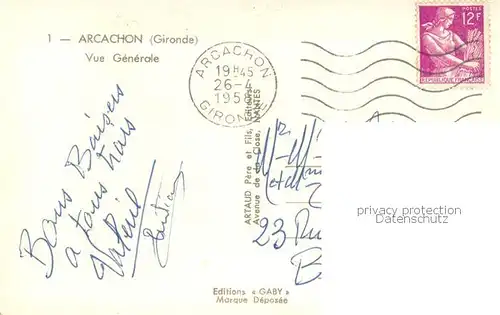 1 — ARCACHON (Gironde)
Vue Générale
ARCACHON
19H45
26-4
GIRONDE
POSTES
12F
RÉPUBLIQUE FRANÇAISE
Bons Baisers
à tous trois
ARTAUD Père et Fils, Editeurs
Avenue de la Close, NANTES
Mr
et M
23 Ru
privacy protection
Datenschutz
Editions « GABY »
Marque Déposée